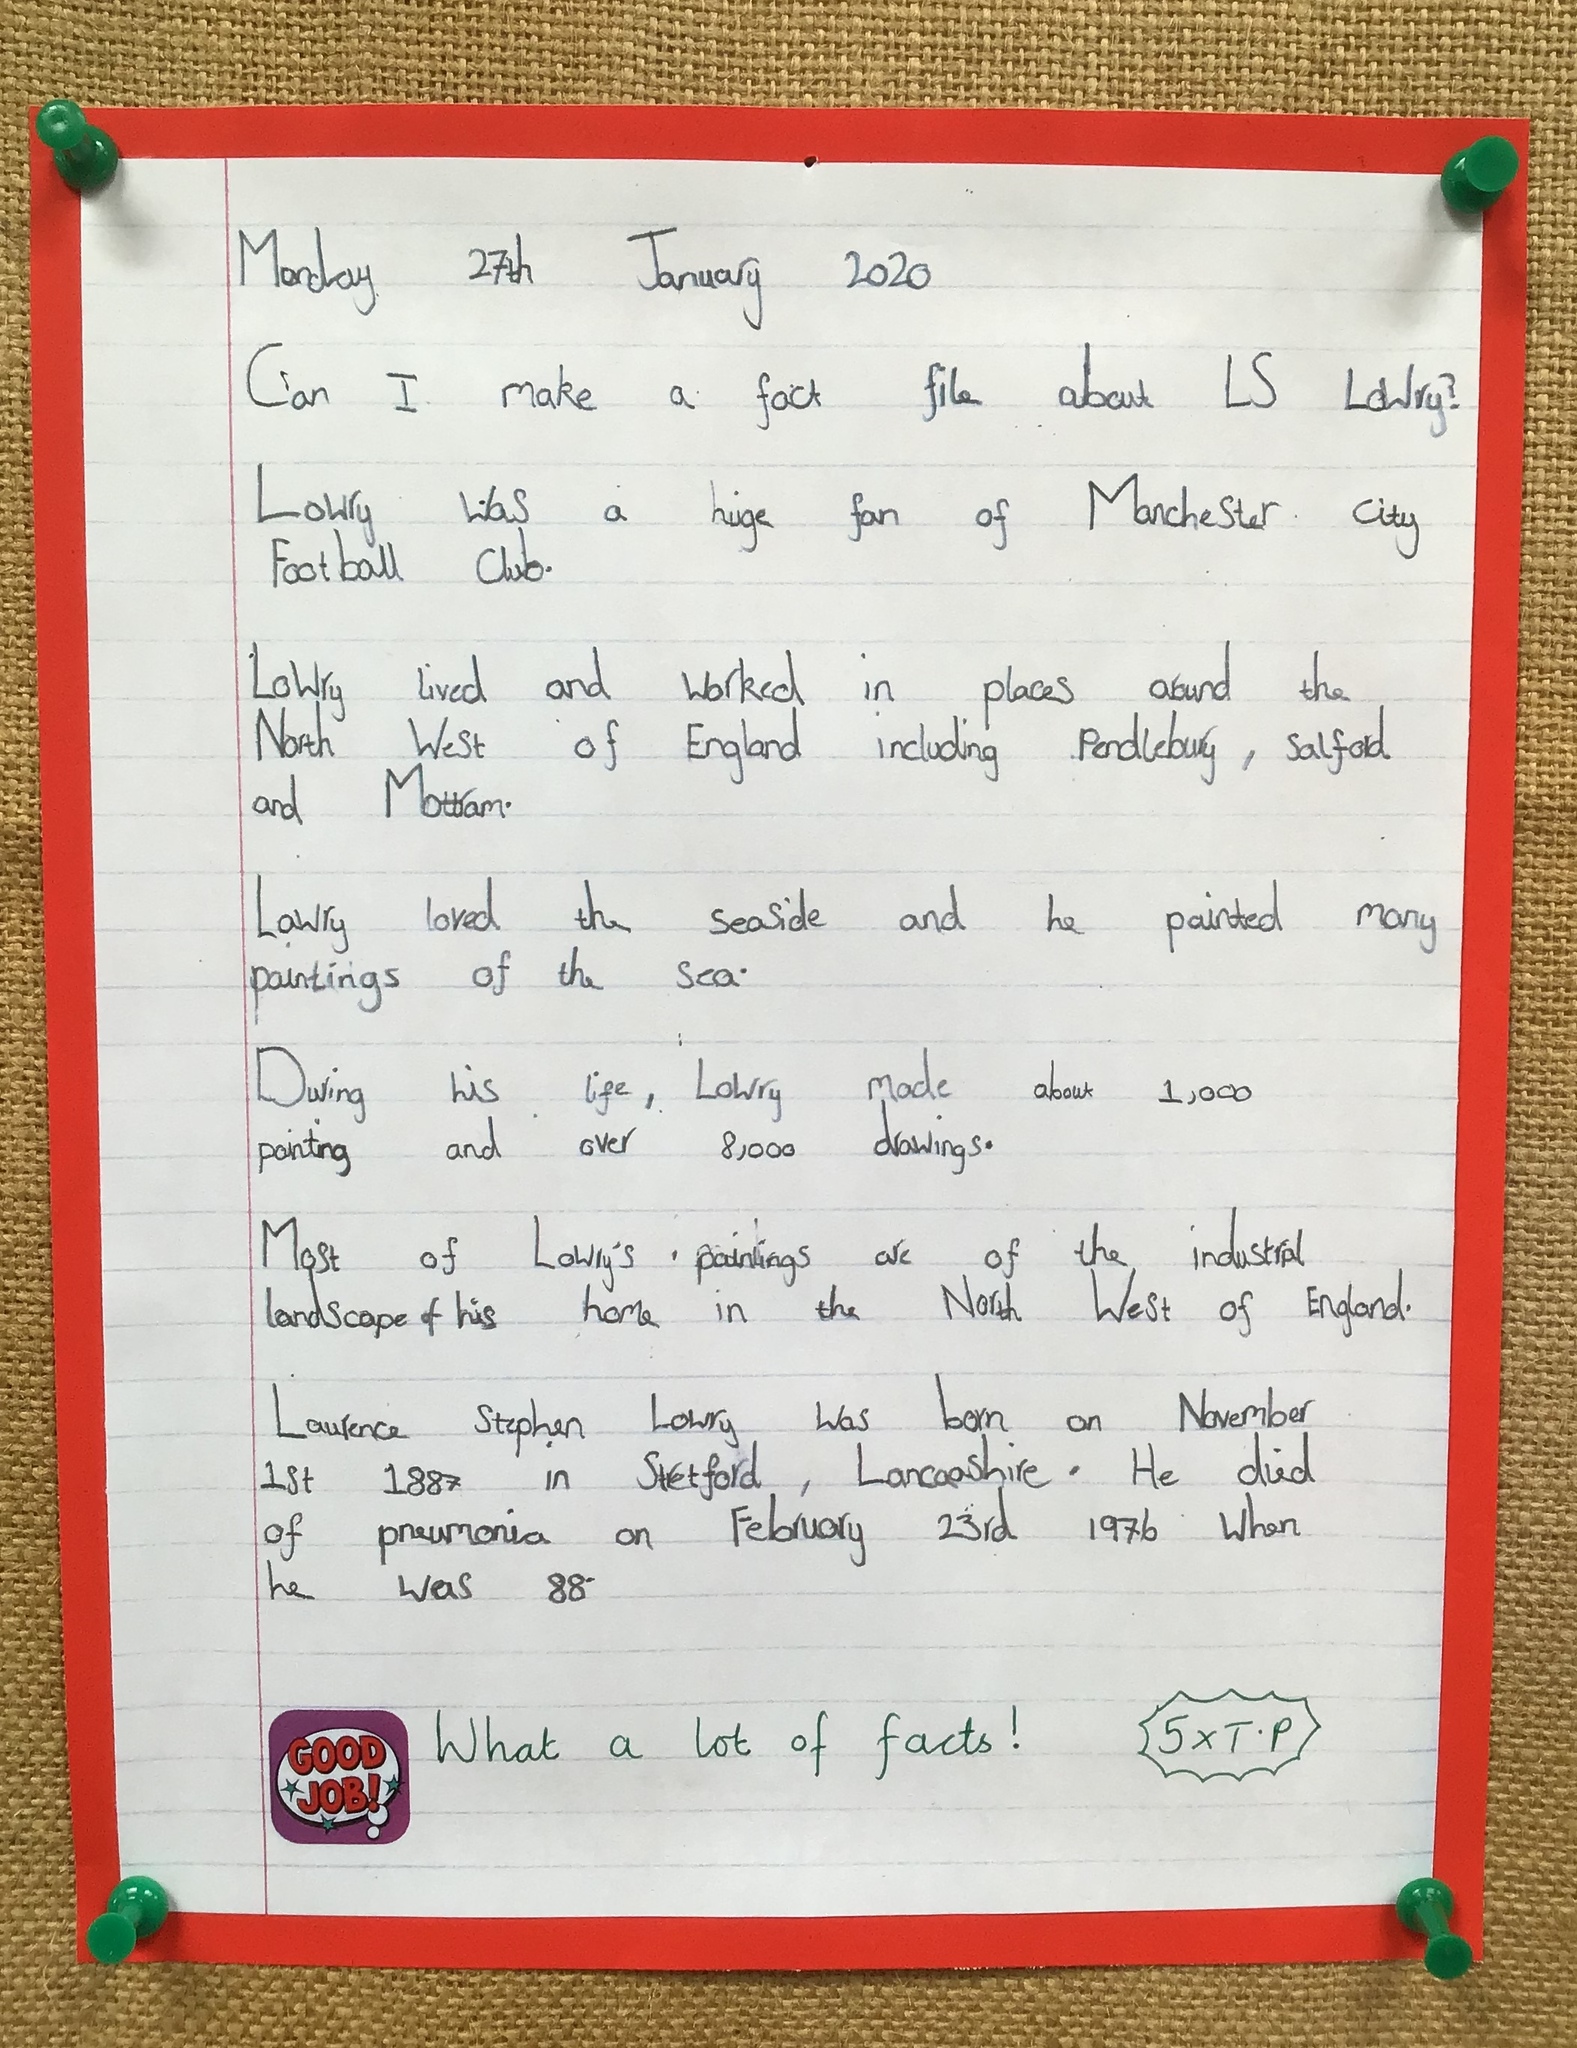 Monday 27th January 2020
Can I make a fact file about LS Lowry?
Lowry was a huge fan of Manchester City
Football Club.
Lowry lived and worked in places around the
North West of England including Pendlebury, Salford
and Mottram.
Lowry loved the seaside and he painted many
paintings of the sea.
During his life, Lowry made about 1,000
painting and over 8,000 drawings.
Most of Lowry's paintings are of the industrial
landscape of his home in the North West of England.
Laurence Stephen Lowry was born on November
1st 1887 in Stretford, Lancashire. He died
of pneumonia on February 23rd 1976 when
he was 88.
GOOD
JOB!
What a lot of facts! 5xT.P